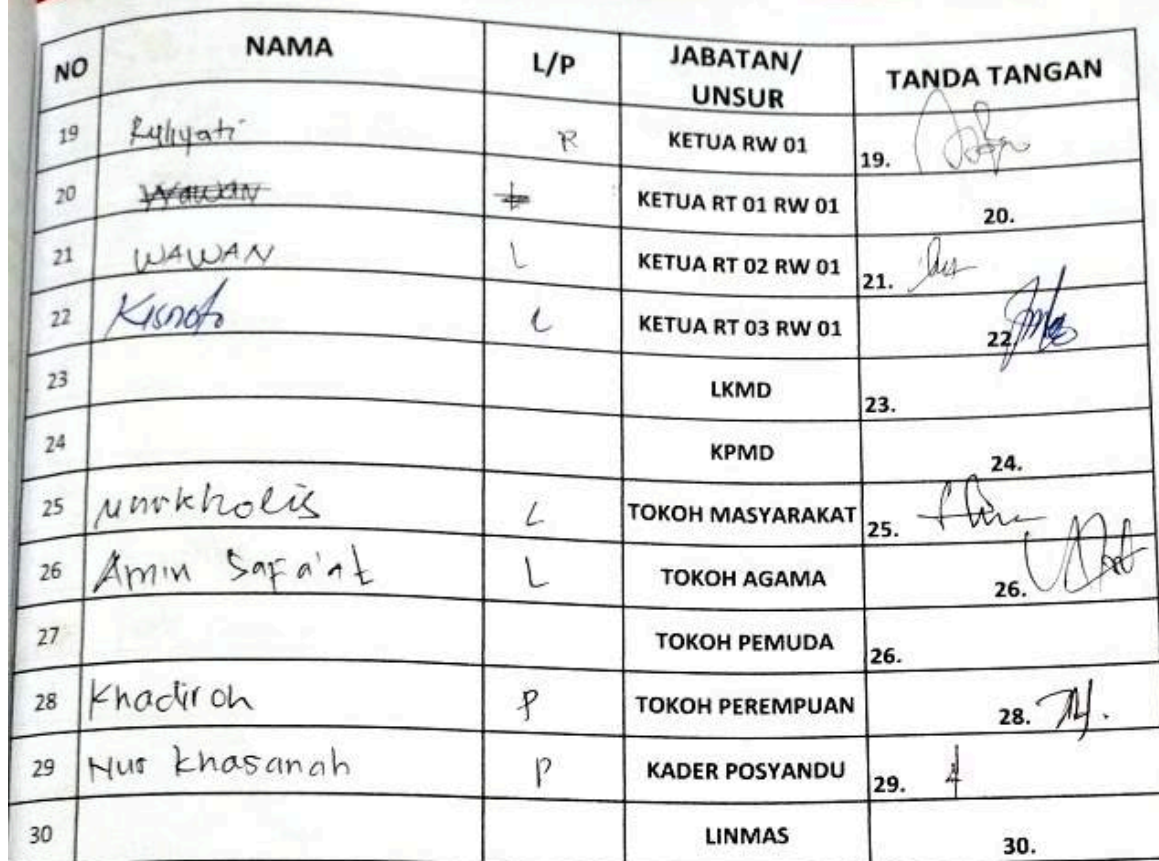 NO NAMA L/P JABATAN/ UNSUR TANDA TANGAN
19 Ruliyati P KETUA RW 01 19.
20 Wawan L KETUA RT 01 RW 01 20.
21 WAWAN L KETUA RT 02 RW 01 21.
22 Kisnoto L KETUA RT 03 RW 01 22
23 LKMD 23.
24 KPMD 24.
25 Nurkholis L TOKOH MASYARAKAT 25.
26 Amin Safa'at L TOKOH AGAMA 26.
27 TOKOH PEMUDA 26.
28 Khadiroh P TOKOH PEREMPUAN 28.
29 Nur Khasanah P KADER POSYANDU 29.
30 LINMAS 30.